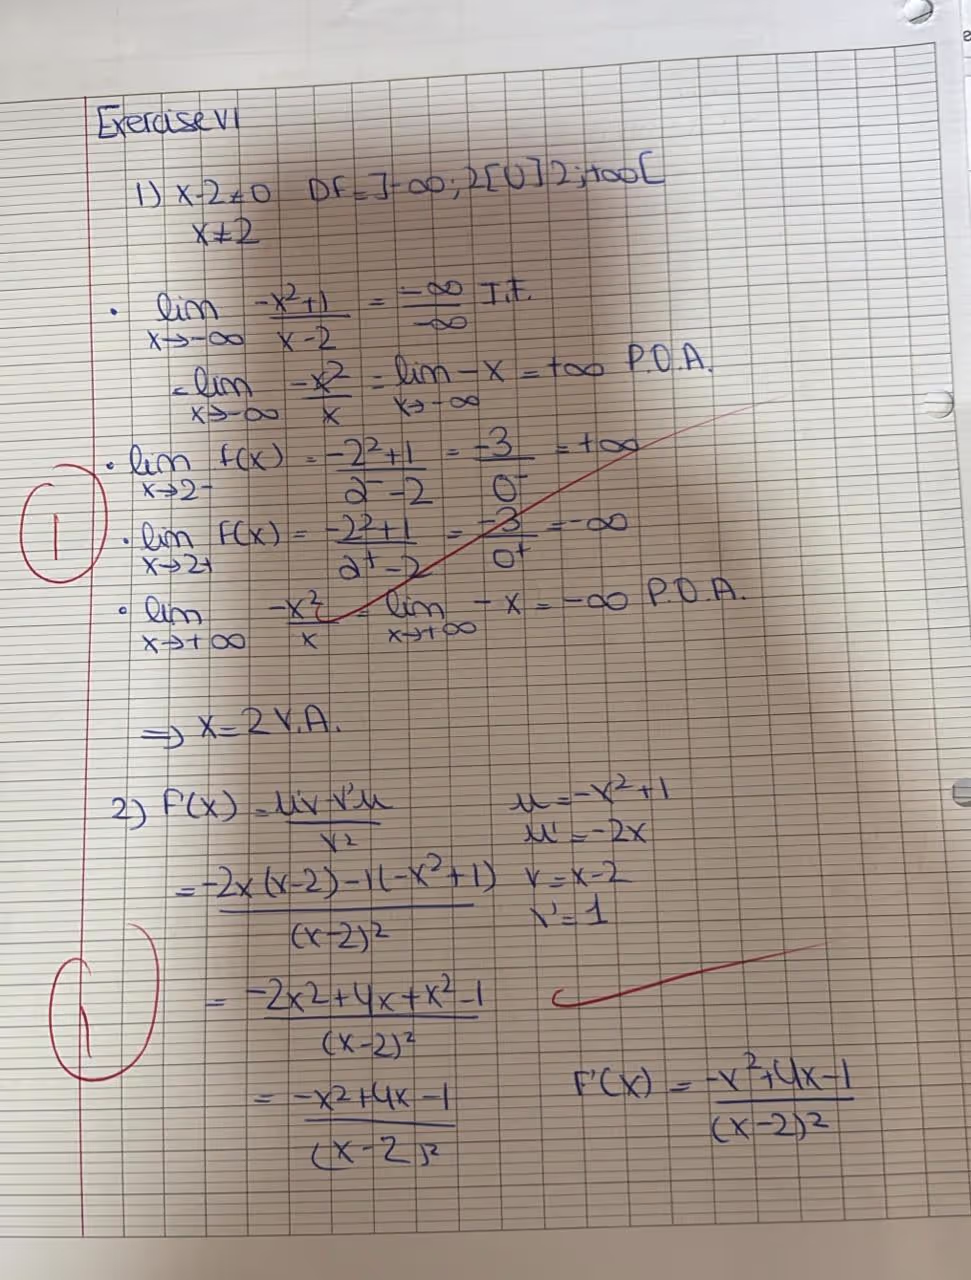 Exercise VI
1) x-2≠0 Df=]-∞;2[U]2;+∞[
x≠2
• lim x→-∞ (-x²+1)/(x-2) = -∞/-∞ I.F.
= lim x→-∞ -x²/x = lim x→-∞ -x = +∞ P.O.A.
• lim x→2⁻ f(x) = (-2²+1)/(2⁻-2) = -3/0⁻ = +∞
1
• lim x→2+ f(x) = (-2²+1)/(2⁺-2) = -3/0⁺ = -∞
• lim x→+∞ -x²/x = lim x→+∞ -x = -∞ P.O.A.
⇒ x=2 V.A.
2) f'(x) = (u'v-v'u)/v² u=-x²+1
u'=-2x
= (-2x(x-2)-1(-x²+1))/(x-2)² v=x-2
v'=1
1
= (-2x2+4x+x²-1)/(x-2)²
= (-x²+4x-1)/(x-2)² f'(x) = (-x²+4x-1)/(x-2)²